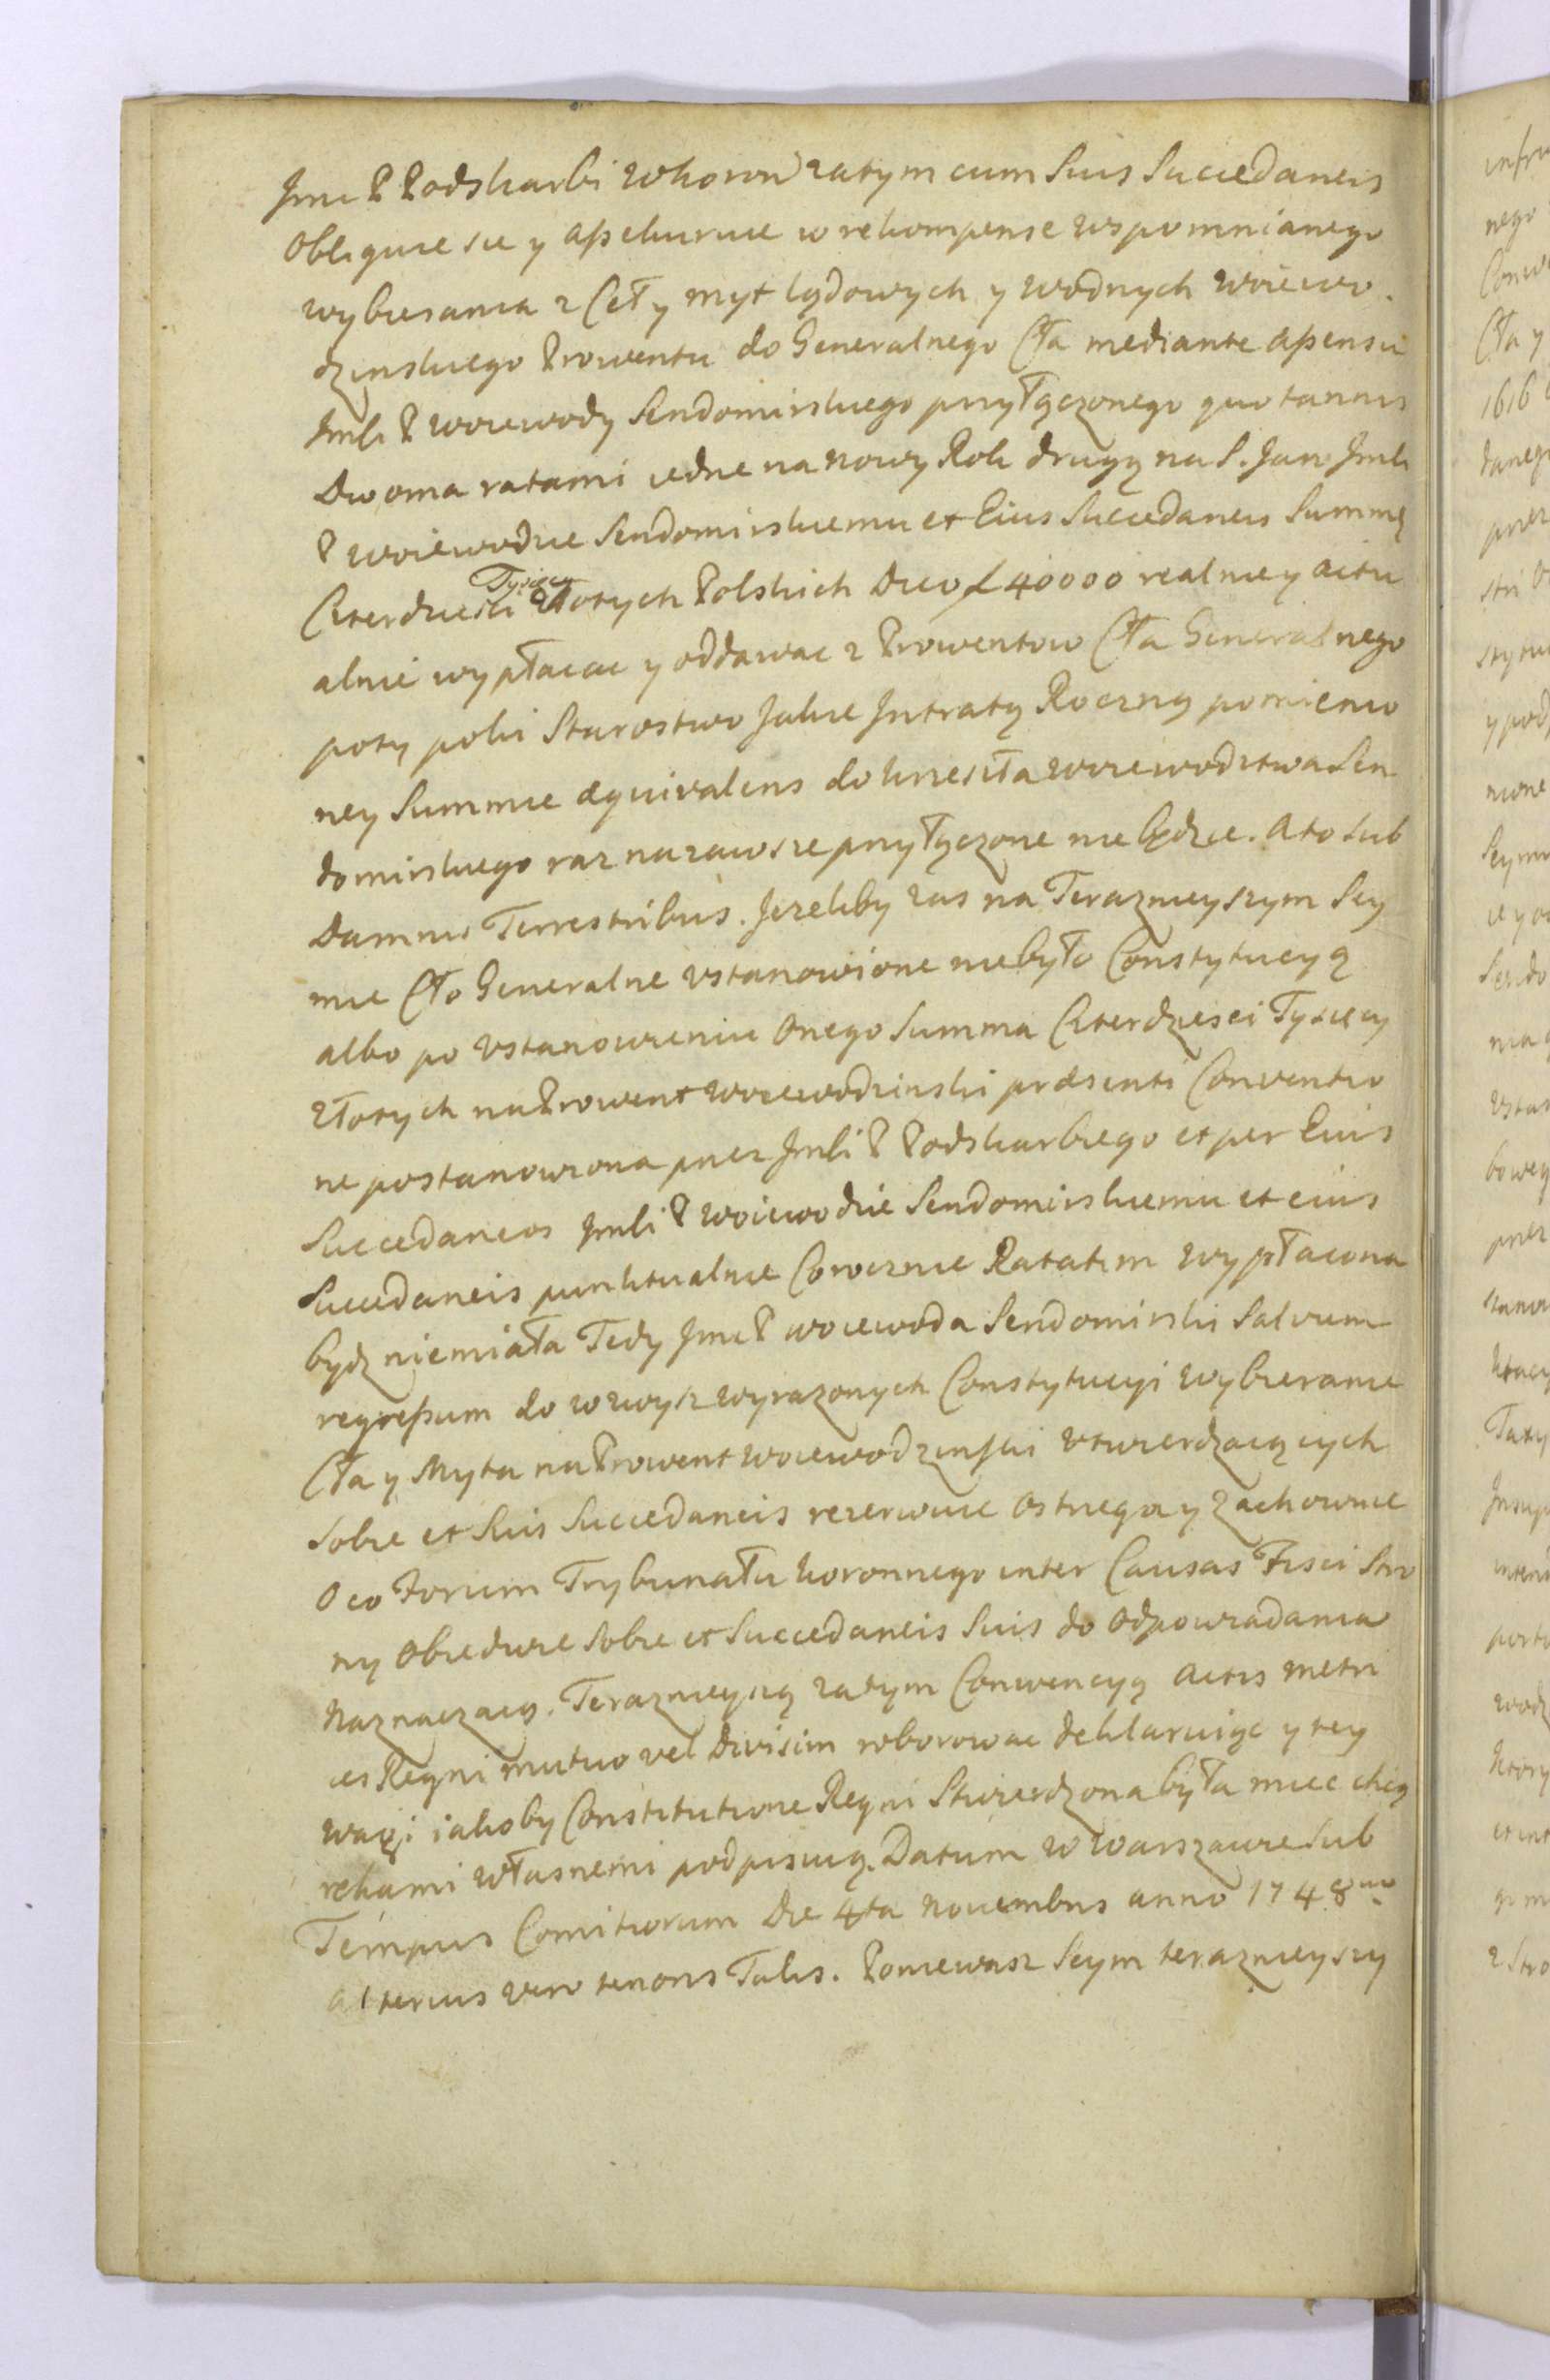 Jmć P Podskarbi W Koron zatym cum Suis Succedaneis
Obliguie sie y assekuruie w rekompense wspomnianego
wybierania z Ceł y myt lądowych y wodnych Woiewo.
dzinskiego Prowentu do Generalnego Cła mediante assensu
Jmśći P Woiewody Sendomirskiego przyłączonego quotannis
Dwoma ratami iedne na nowy Rok drugą na S. Jan Jmśći
P Woiewodzie Sendomirskiemu et Eius Succedaneis Summę
Czterdziesci Tysięcy Złotych Polskich Dico f 40000 realnie y actu
alnie wypłacac y oddawac z Prowentow Cła Generalnego
poty poki Starostwo Jakie Jntratą Roczną pomienio
ney Summie æquivalens do krzesła Woiewodztwa Sen
domirskiego raz nazawsze przyłączone nie będzie. A to sub
Damnis Terrestribus. Jezeliby zas na Teraznieyszym Sey
mie Cło Generalne ustanowione niebyło Constytucyą
albo po ustanowieniu Onego Summa Czterdziesci Tysięcy
złotych na Prowent Woiewodzinski præsenti Conventio
ne postanowiona przez Jmśći P Podskarbiego et per Eius
Succedaneos Jmśći P Woiewodzie Sendomirskiemu et eius
Succedaneis punktualnie Corocznie Ratatim wypłacona
bydz niemiała Tedy Jmć P woiewoda Sendomirski Salvum
regressum do wzwysz wyrazonych Constytucyi wybieranie
Cła y Myta na Prowent woiewodzinski utwierdzaiących
Sobie et Suis Succedaneis rezerwuie ostrzega y zachownie
O co Forum Trybunału koronnego inter Causas Fisci Stro
ny Obiedwie Sobie et Succedaneis Suis do Odpowiadania
Naznaczaią. Teraznieyszą zatym Conwencyą actis metri
ces Regni mutuo vel Divisim roborowac deklaruiąc y tey
wagi iakoby Constitutione Regni Stwierdzona była miec chcą
rękami własnemi podpisuią. Datum w Warszawie Sub
Tempus Comitiorum Die 4ta Novembris anno 1748vo
Alterius vero tenoris Talis. Poniewasz Seym teraznieyszy